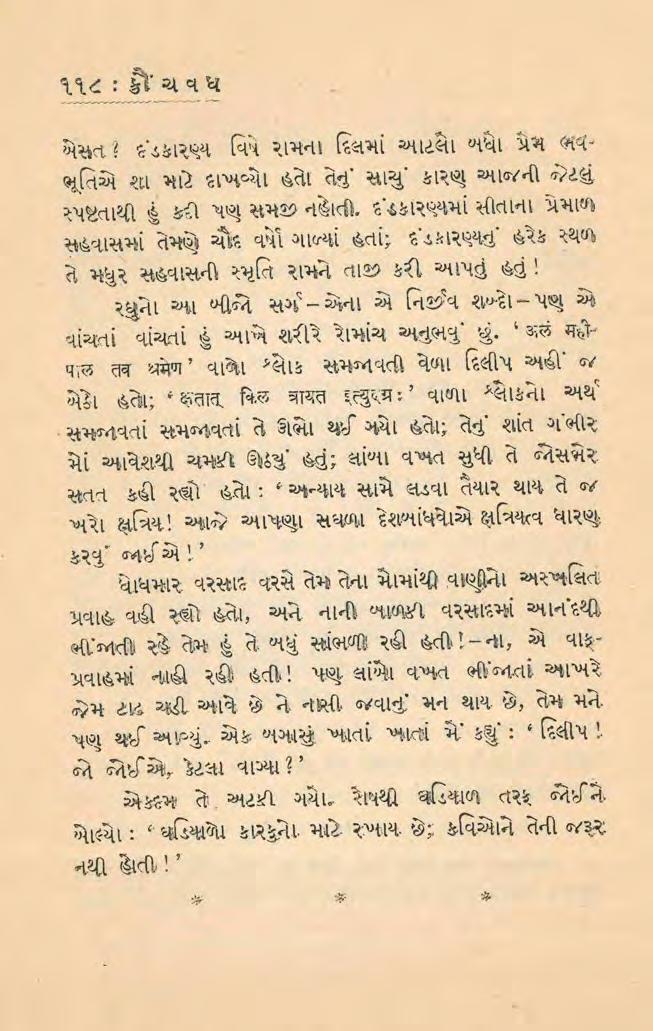 ૧૧૮ : ક્રૌંચવધ
બેસત ? દંડકારણ્ય વિષે રામના દિલમાં આટલો બધો પ્રેમ ભવ-
ભૂતિએ શા માટે દાખવ્યો હતો તેનું સાચું કારણ આજની જેટલું
સ્પષ્ટતાથી હું કદી પણ સમજી નહોતી. દંડકારણ્યમાં સીતાના પ્રેમાળ
સહવાસમાં તેમણે ચૌદ વર્ષો ગાળ્યાં હતાં; દંડકારણ્યનું હરેક સ્થળ
તે મધુર સહવાસની સ્મૃતિ રામને તાજી કરી આપતું હતું !
રઘુનો આ બીજો સર્ગ – એના એ નિર્જીવ શબ્દો – પણ એ
વાંચતાં વાંચતાં હું આખે શરીરે રોમાંચ અનુભવું છું. ‘ अलं मही-
पाल तव श्रमेण ’ વાળો શ્લોક સમજાવતી વેળા દિલીપ અહીં જ
બેઠો હતો; ‘ क्षतात् किल त्रायत इत्युदग्रः ’ વાળા શ્લોકનો અર્થ
સમજાવતાં સમજાવતાં તે ઊભો થઈ ગયો હતો; તેનું શાંત ગંભીર
મોં આવેશથી ચમકી ઊઠ્યું હતું; લાંબા વખત સુધી તે જોસભેર
સતત કહી રહ્યો હતો : ‘ અન્યાય સામે લડવા તૈયાર થાય તે જ
ખરો ક્ષત્રિય ! આજે આપણા સઘળા દેશબાંધવોએ ક્ષત્રિયત્વ ધારણ
કરવું જોઈએ ! ’
ધોધમાર વરસાદ વરસે તેમ તેના મોંમાંથી વાણીનો અસ્ખલિત
પ્રવાહ વહી રહ્યો હતો, અને નાની બાળકી વરસાદમાં આનંદથી
ભીંજાતી રહે તેમ હું તે બધું સાંભળી રહી હતી ! – ના, એ વાક્-
પ્રવાહમાં નાહી રહી હતી ! પણ લાંબો વખત ભીંજાતાં આખરે
જેમ ટાઢ ચઢી આવે છે ને નાસી જવાનું મન થાય છે, તેમ મને
પણ થઈ આવ્યું. એક બગાસું ખાતાં ખાતાં મેં કહ્યું : ‘ દિલીપ !
જો જોઈએ, કેટલા વાગ્યા ? ’
એકદમ તે અટકી ગયો. રોષથી ઘડિયાળ તરફ જોઈને
બોલ્યો : ‘ ઘડિયાળો કારકુનો માટે રખાય છે; કવિઓને તેની જરૂર
નથી હોતી ! ’
* * *